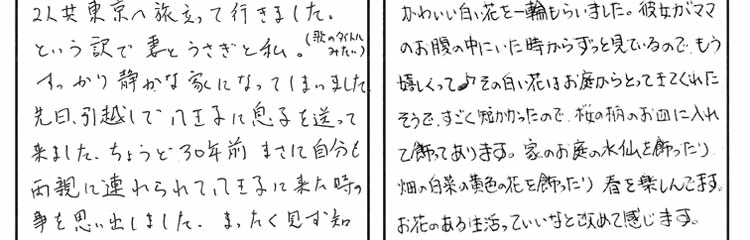 2人共東京へ旅立って行きました。
という訳で妻とうさぎと私。(歌のタイトルみたい)
すっかり静かな家になってしまいました
先日、引越しで八王子に息子を送って
来ました。ちょうど30年前まさに自分も
両親に連れられて、八王子に来た時の
事を思い出しました。まったく見ず知
かわいい白い花を一輪もらいました。彼女がママ
のお腹の中にいた時からずっと見ているので、もう
嬉しくって♪その白い花はお庭からとってきてくれた
そうで、すごく短かかったので、桜の柄のお皿に入れ
て飾ってあります。家のお庭の水仙を飾ったり
畑の白菜の黄色の花を飾ったり春を楽しんでます。
お花のある生活っていいなと改めて感じます。